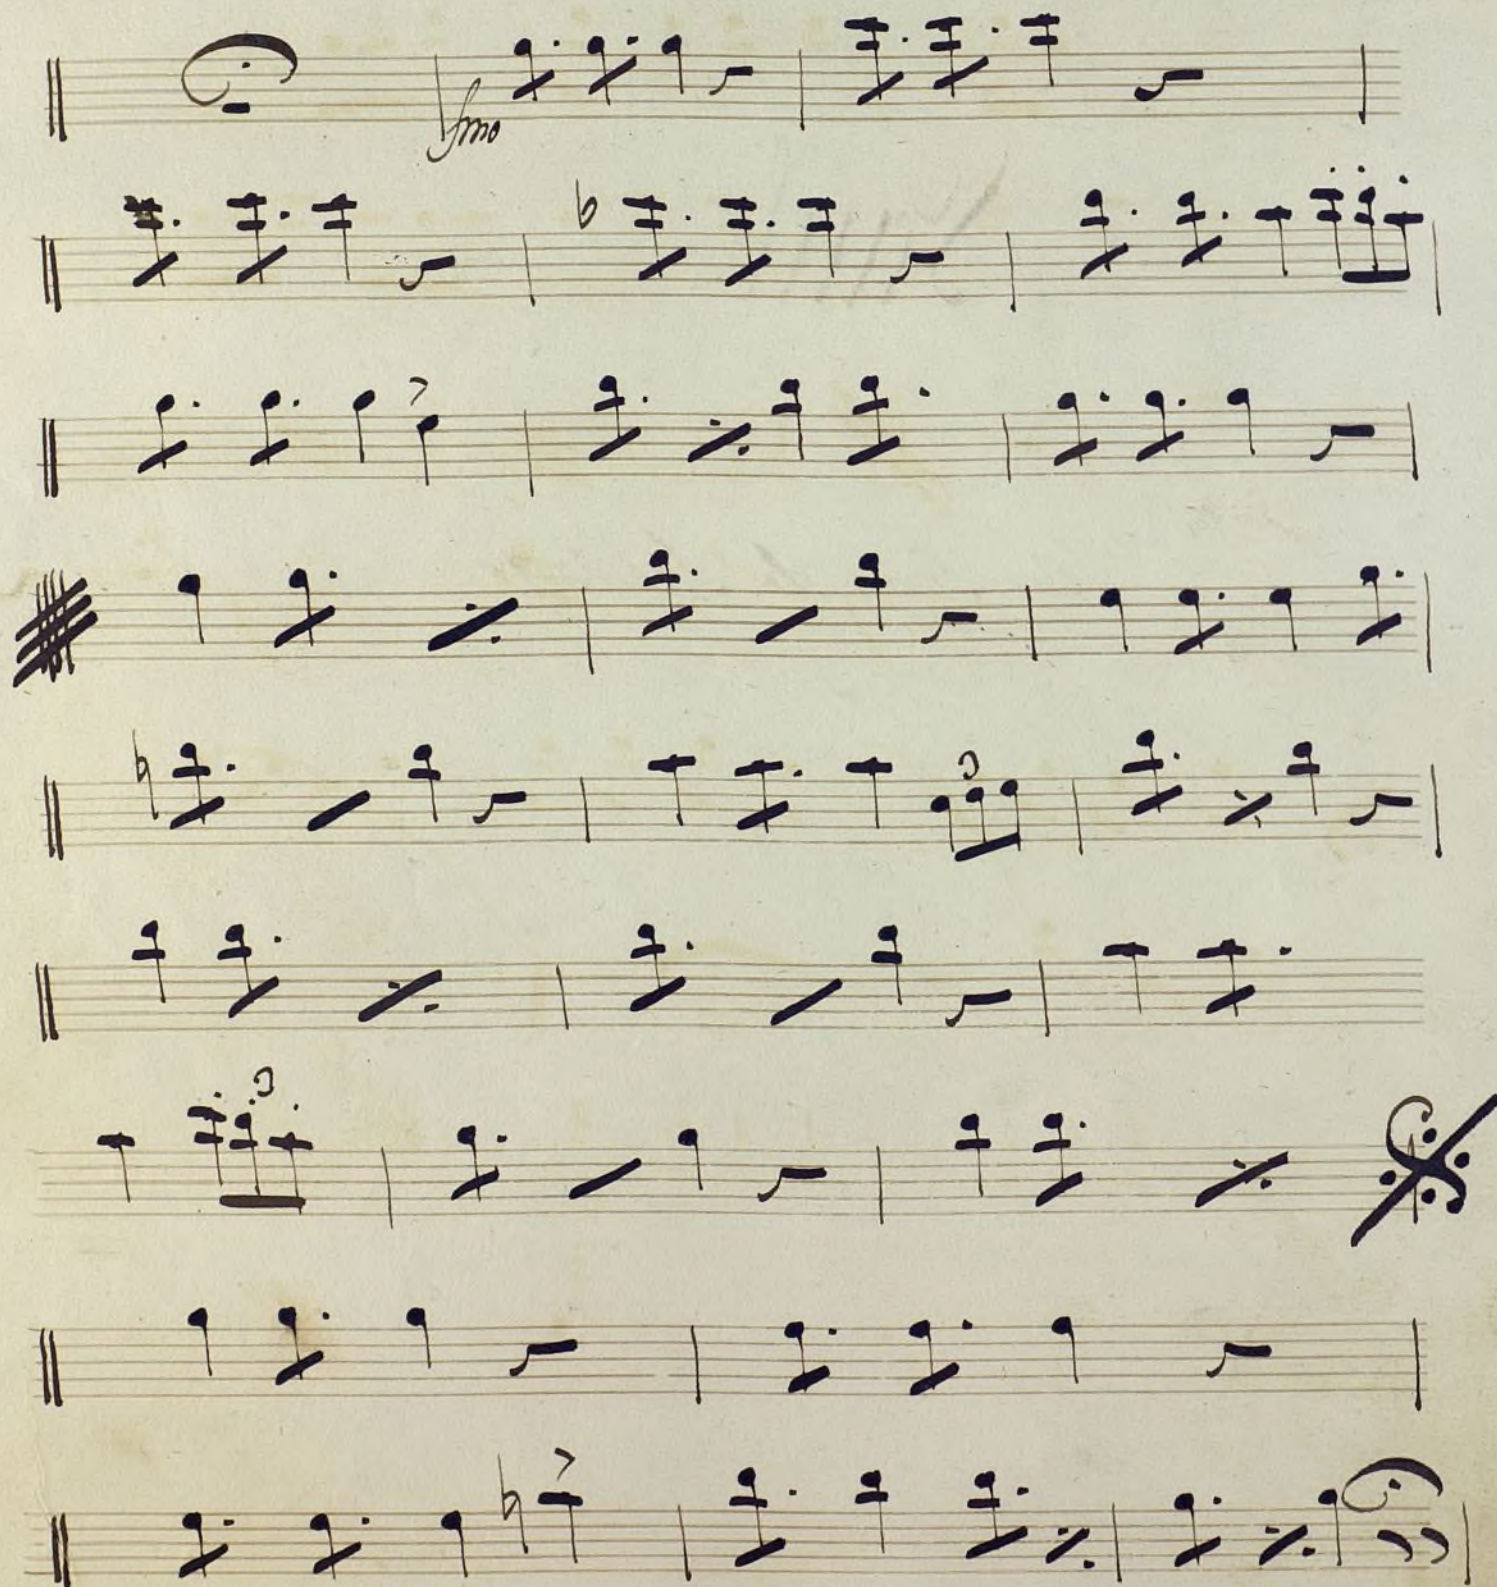 fmo
3
3